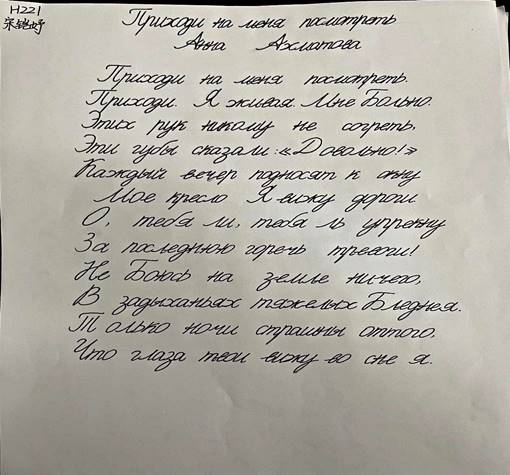 H221
宋锴妤
Приходи на меня посмотреть
Анна Ахматова
Приходи на меня посмотреть.
Приходи. Я живая. Мне Больно.
Этих рук никому не согреть,
Эти губы сказали: «Довольно!»
Каждый вечер подносят к окну
Мое кресло. Я вижу дороги
О, тебя ли, тебя ль упрекну
За последнюю горечь тревоги!
Не Боюсь на земле ничего,
В задыханьях тяжелых Бледнея.
Только ночи страшны оттого,
Что глаза твои вижу во сне я.